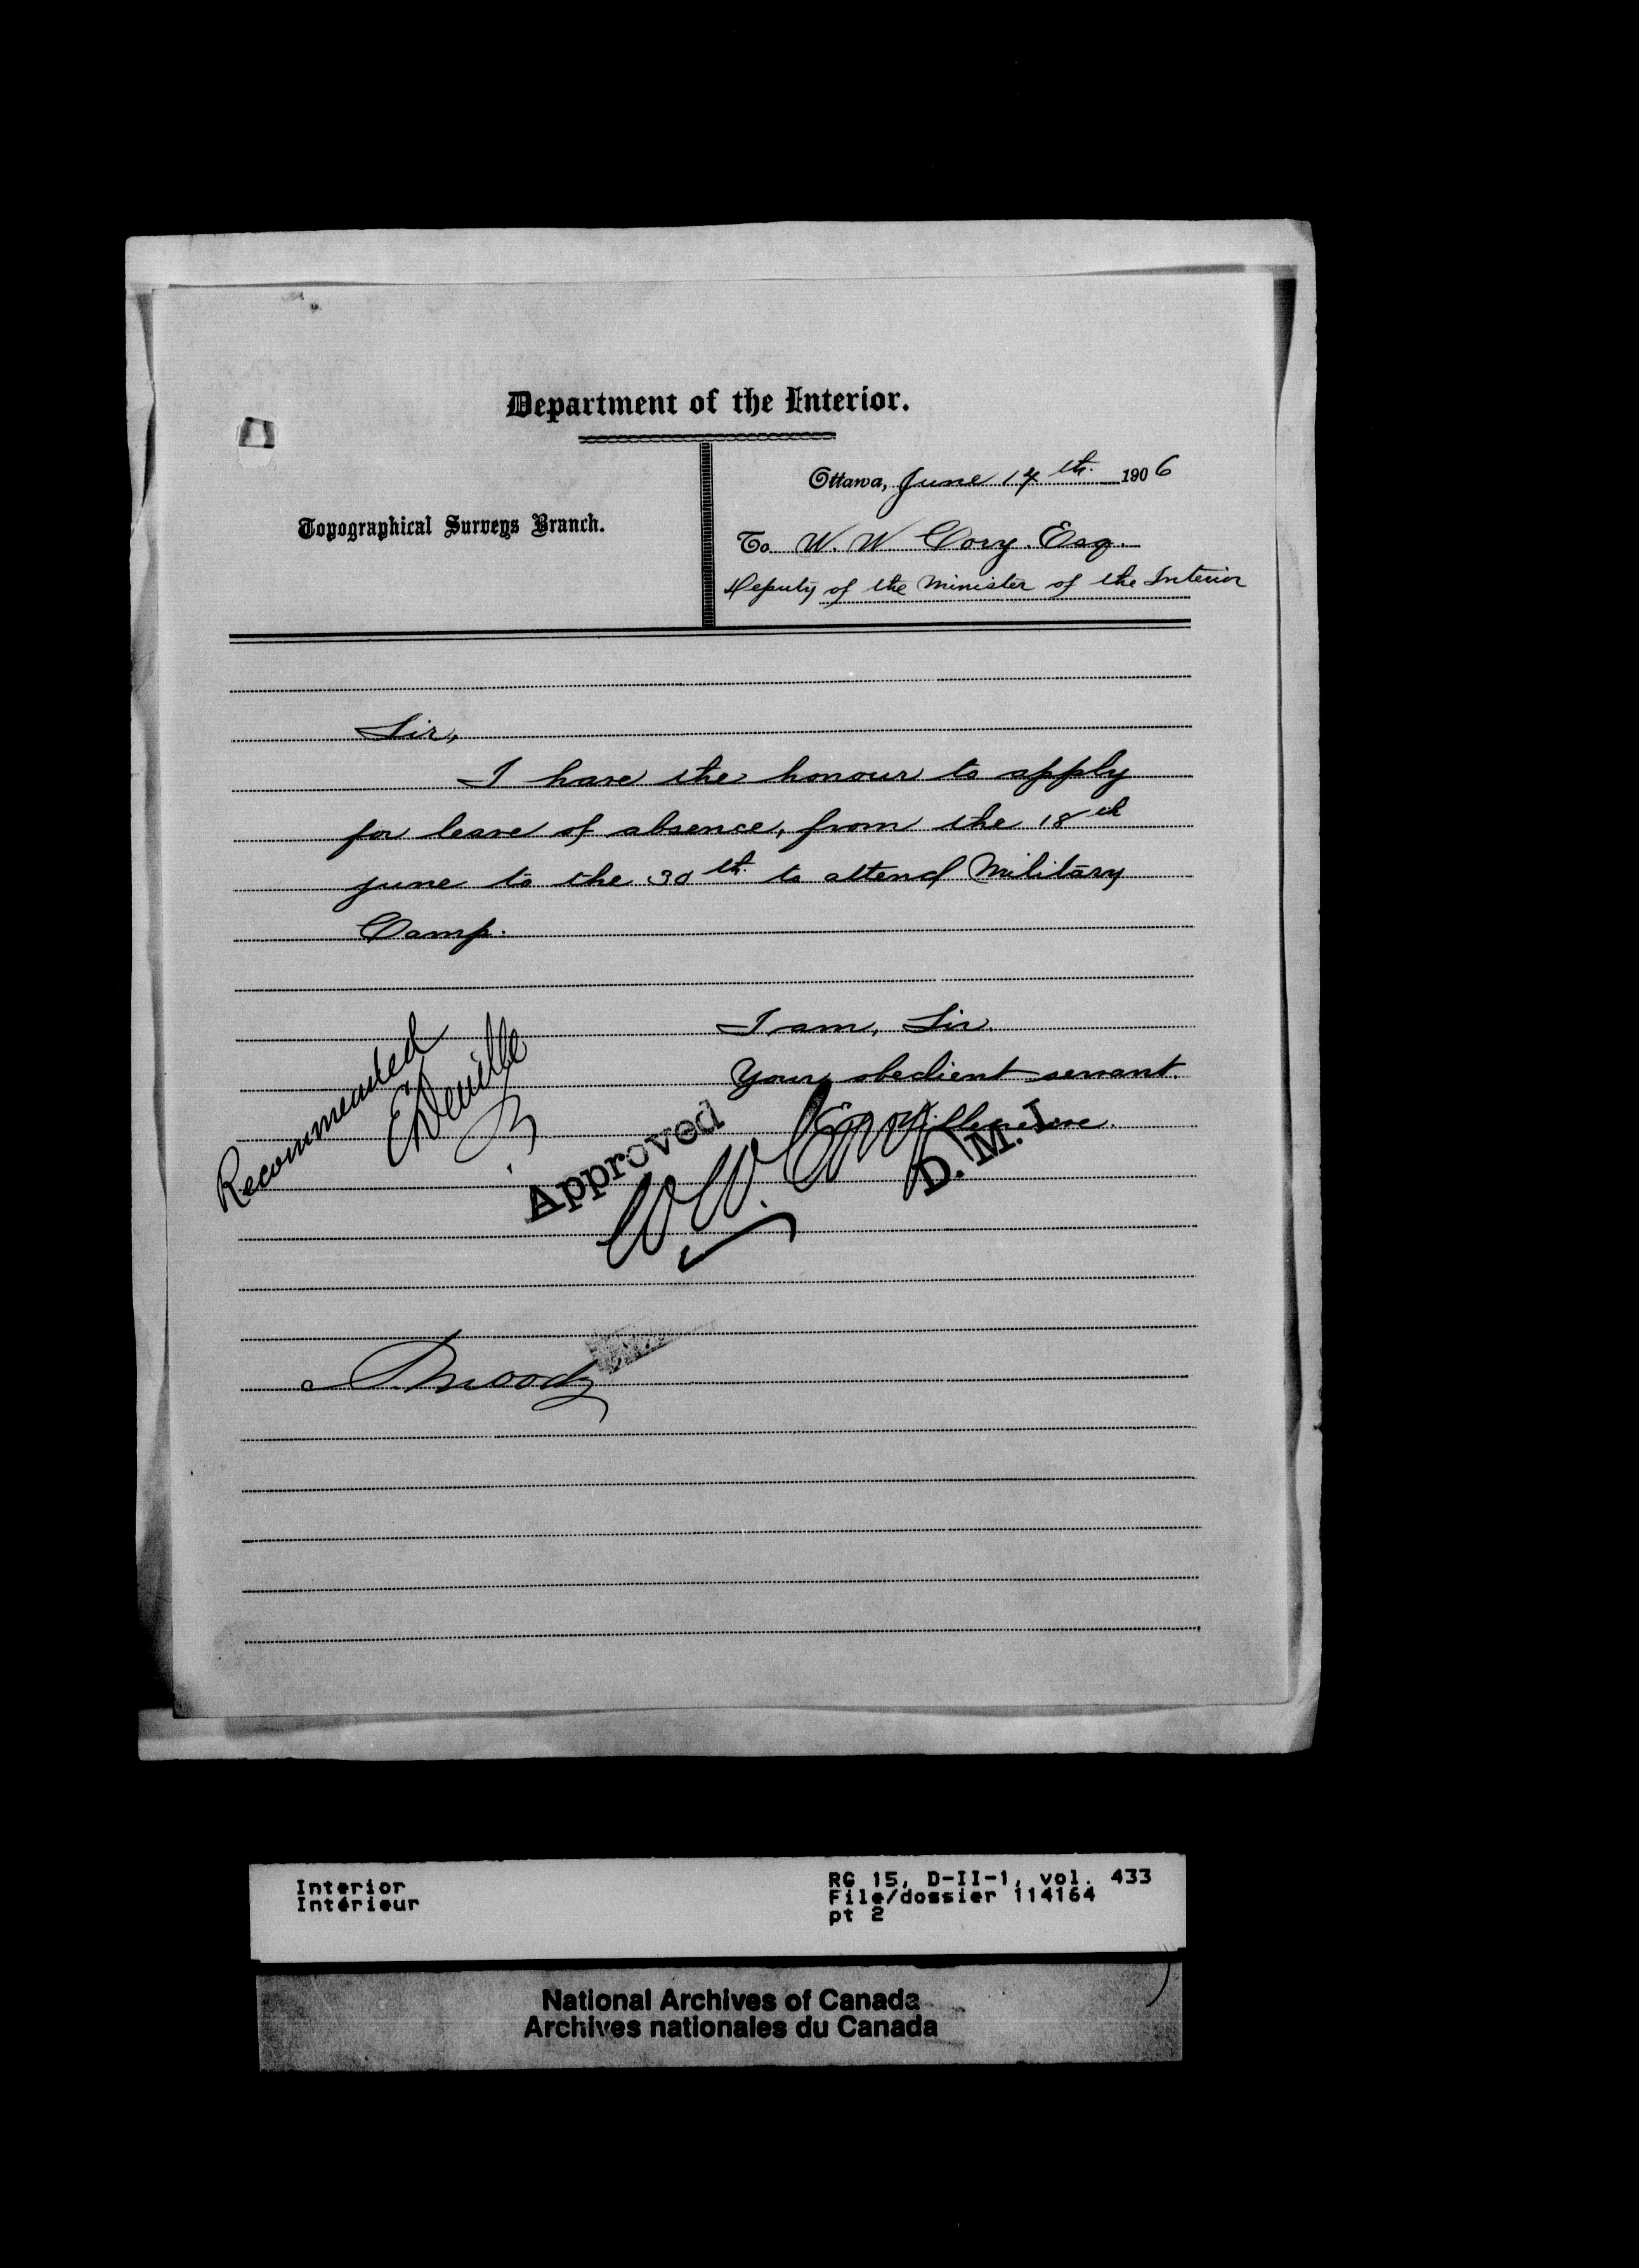 Department of the Interior.
Topographical Surveys Branch.
Ottawa, June 14th. 1906
To W. W. Cory. Esq.
Deputy of the Minister of the Interior
Sir,
I have the honour to apply
for leave of absence, from the 18th
June to the 30th. to attend Military
Camp.
I am, Sir.
Your obedient servant.
Recommended
E Deville
Approved
W. W. Cory
D. M. I.
Moody
Interior
Intérieur
RG 15, D-II-1, vol. 433
File/dossier 114164
pt 2
National Archives of Canada
Archives nationales du Canada